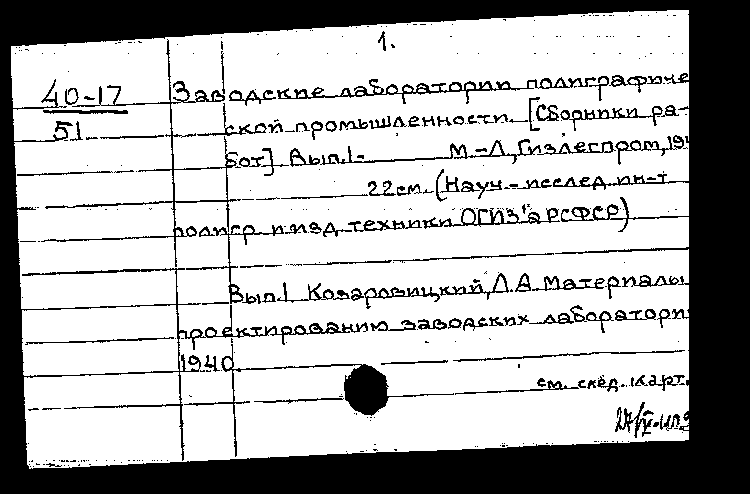 1.
40-17 Заводские лаборатории полиграфиче
51 ской промышленности. [Сборники ра-
бот]. Вып.1- М.-Л., Гизлегпром, 194
22см. (Науч.-исслед. ин-т
полигр. и изд. техники ОГИЗ'а РСФСР)
Вып.1 Козаровицкий, Л.А. Материалы
проектированию заводских лаборатори
1940.
см. след. карт.